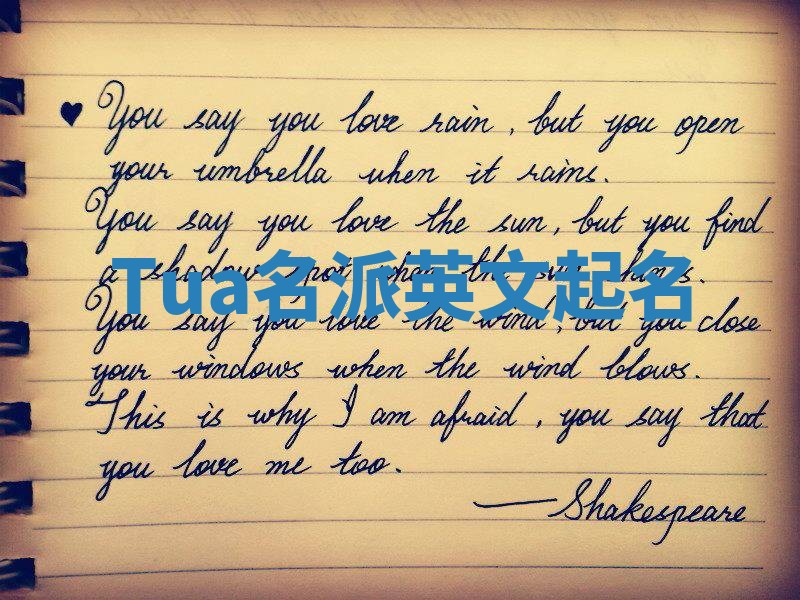 ♥ You say you love rain, but you open
your umbrella when it rains.
You say you love the sun, but you find
a shadow spot when the sun shines.
Tua名派英文起名
You say you love the wind, but you close
your windows when the wind blows.
This is why I am afraid, you say that
you love me too.
—Shakespeare